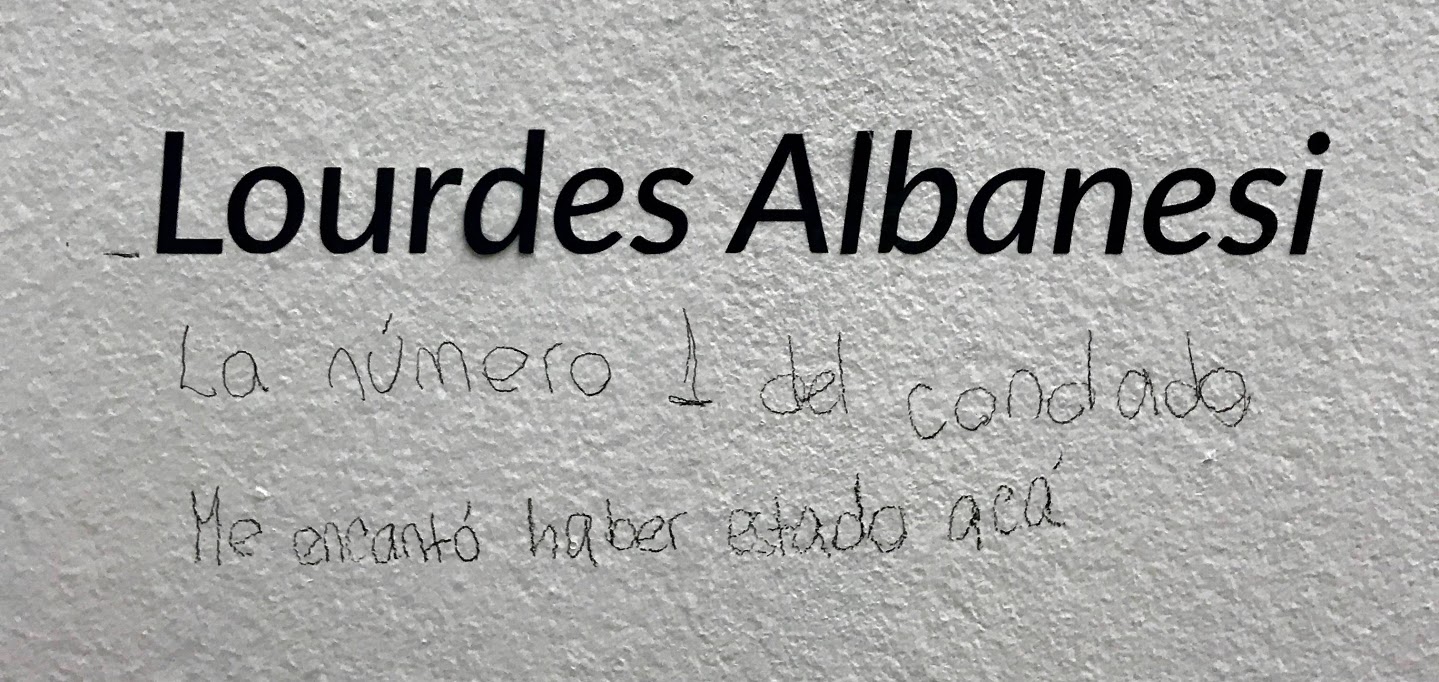 Lourdes Albanesi
La número 1 del condado
Me encantó haber estado acá